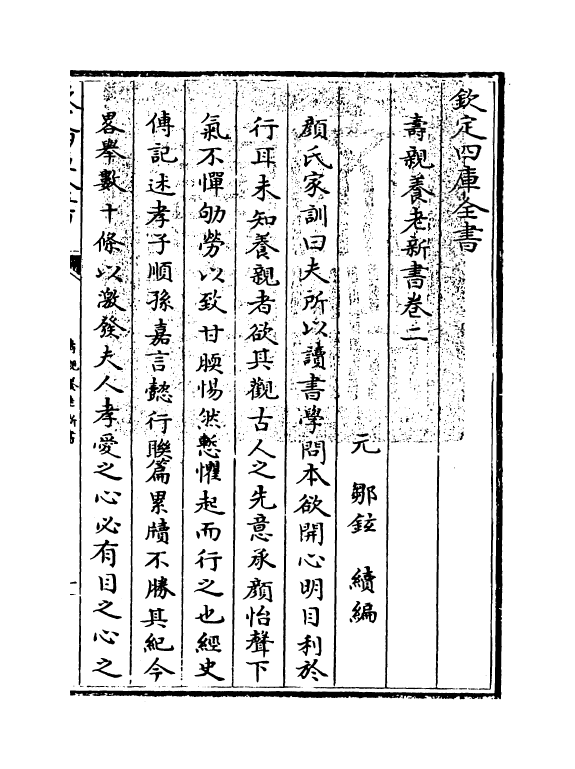 欽定四庫全書
壽親養老新書卷二
元　鄒鉉　續編
顏氏家訓曰夫所以讀書學問本欲開心明目利於
行耳未知養親者欲其觀古人之先意承顏怡聲下
氣不憚劬勞以致甘腝惕然慙懼起而行之也經史
傳記述孝子順孫嘉言懿行聨篇累牘不勝其紀今
畧舉數十條以激發夫人孝愛之心必有目之心之